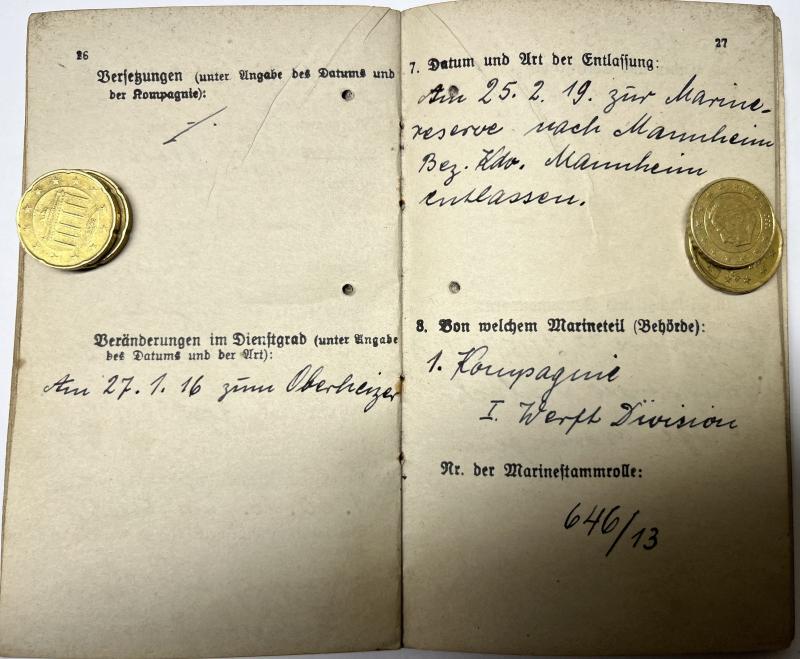 26
Versetzungen (unter Angabe des Datums und
der Kompagnie):
Veränderungen im Dienstgrad (unter Angabe
des Datums und der Art):
Am 27. 1. 16 zum Oberheizer
27
7. Datum und Art der Entlassung:
Am 25. 2. 19. zur Marine-
reserve nach Mannheim
Bez. Kdo. Mannheim
entlassen.
8. Von welchem Marineteil (Behörde):
1. Kompagnie
I. Werft Division
Nr. der Marinestammrolle:
646/13